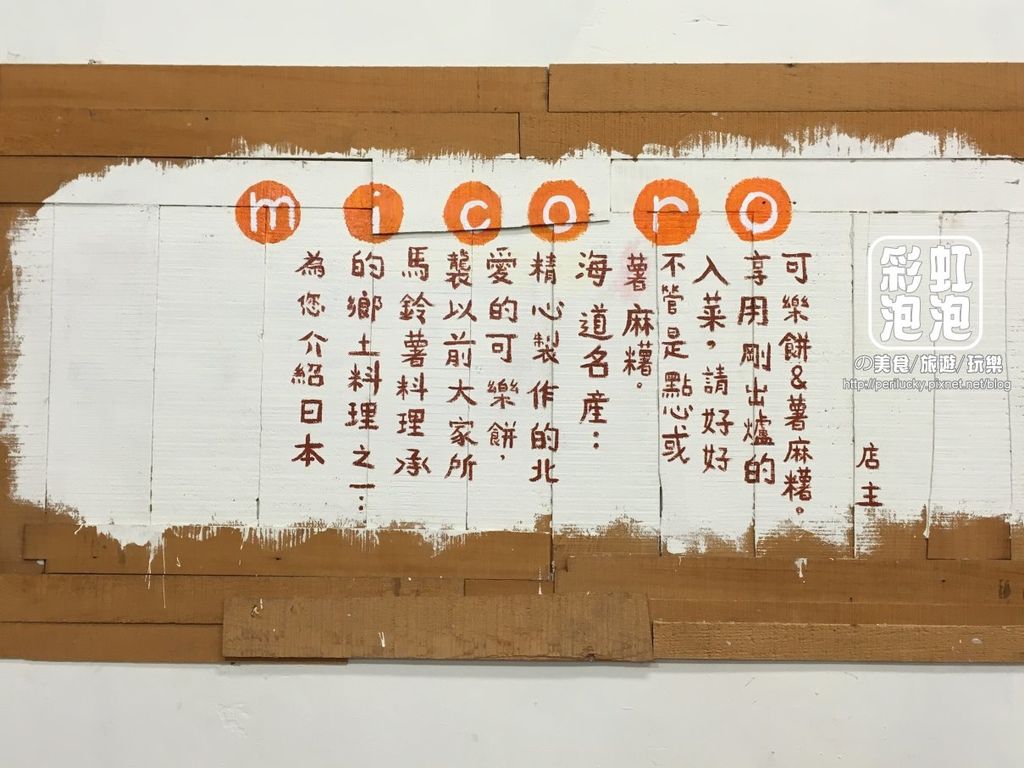 micoro
為您介紹日本
的鄉土料理之一：
馬鈴薯料理承
襲以前大家所
愛的可樂餅，
精心製作的北
海道名産：
薯麻糬。
不管是點心或
入菜，請好好
享用剛出爐的
可樂餅&薯麻糬。
店主
彩虹泡泡
の美食/旅遊/玩樂
http://perilucky.pixnet.net/blog